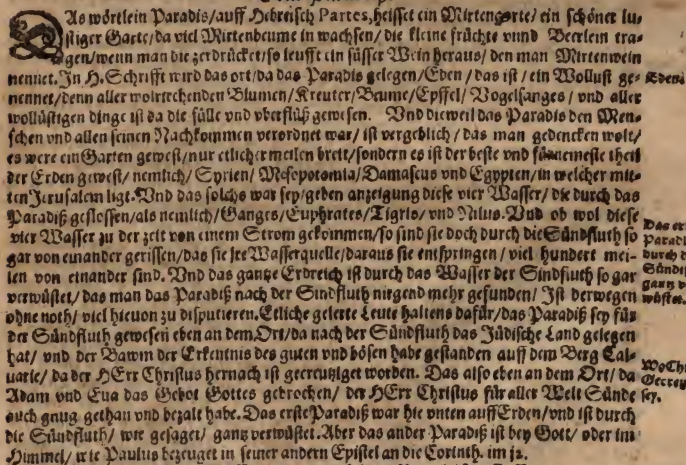 DAs wörtlein Paradis/auff Hebreisch Partes, heisset ein Mirtengarte/ ein schöner lu-
stiger Garte/da viel Mirtenbeume in wachsen/ die kleine früchte vnnd Beerlein tra-
gen/wenn man die zerdrücket/so leufft ein süsser Wein heraus/ den man Mirtenwein
nennet. In H. Schrifft wird das ort/da das Paradis gelegen/Eden/ das ist / ein Wollust ge-
nennet/denn aller wolriechenden Blumen/Kreuter/Beume/Epffel/ Vogelsanges/ vnd aller
wollüstigen dinge ist da die fülle vnd vberflüß gewesen. Vnd dieweil das Paradis den Men-
schen vnd allen seinen Nachkommen verordnet war/ ist vergeblich / das man gedencken wolt/
es were ein Garten gewest/nur etlicher meilen breit/sondern es ist der beste vnd fürnemeste theil
der Erden gewest/ nemlich/ Syrien/ Mesopotamia/Damascus vnd Egypten/in welcher mit-
ten Jerusalem ligt. Vnd das solchs war sey/geben anzeigung diese vier Wasser/ die durch das
Paradiß geflossen/als nemlich/Ganges/Euphrates/Tigris/ vnd Nilus. Vnd ob wol diese
vier Wasser zu der zeit von einem Strom gekommen/so sind sie doch durch die Sündfluth so
gar von einander gerissen/das sie jre Wasserquelle/daraus sie entspringen / viel hundert mei-
len von einander sind. Vnd das gantze Erdreich ist durch das Wasser der Sindfluth so gar
verwüstet/das man das Paradiß nach der Sindfluth nirgend mehr gefunden/ Ist derwegen
ohne noth/ viel hieuon zu disputieren. Etliche gelerte Leute haltens dafür/das Paradiß sey für
der Sündfluth gewesen eben an dem Ort/da nach der Sündfluth das Jüdische Land gelegen
hat/ vnd der Bawm der Erkentnis des guten vnd bösen habe gestanden auff dem Berg Cal-
uarie/ da der HErr Christus hernach ist gecreutziget worden. Das also eben an dem Ort/ da
Adam vnd Eua das Gebot Gottes gebrochen/ der HErr Christus für aller Welt Sünde
auch gnug gethan vnd bezalt habe. Das erste Paradiß war hie vnten auff Erden/vnd ist durch
die Sündfluth/ wie gesaget/ gantz verwüstet. Aber das ander Paradiß ist bey Gott/ oder im
Himmel/ wie Paulus bezeuget in seiner andern Epistel an die Corinth. im 12.
Eden.
Das er
Paradi
durch d
Sündf
gantz v
wüstet.
Wo Ch
Gecreu
sey.